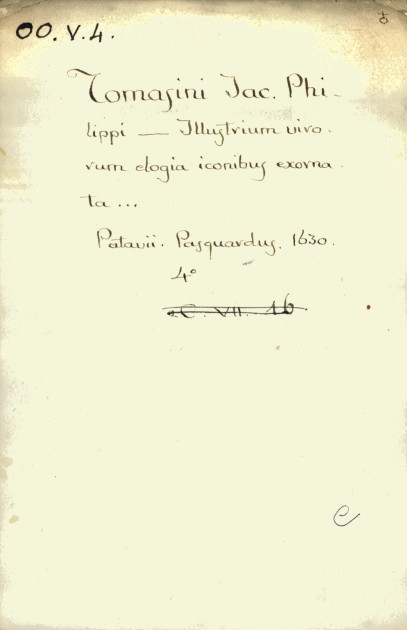 OO.V.4.
Tomasini Jac. Phi-
lippi — Illustrium viro-
rum elogia iconibus exorna-
ta...
Patavii. Pasquardus. 1630.
4°
C. VII. 16
e